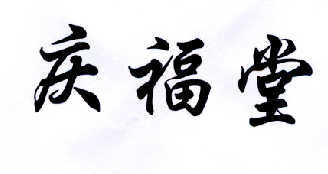 庆福堂